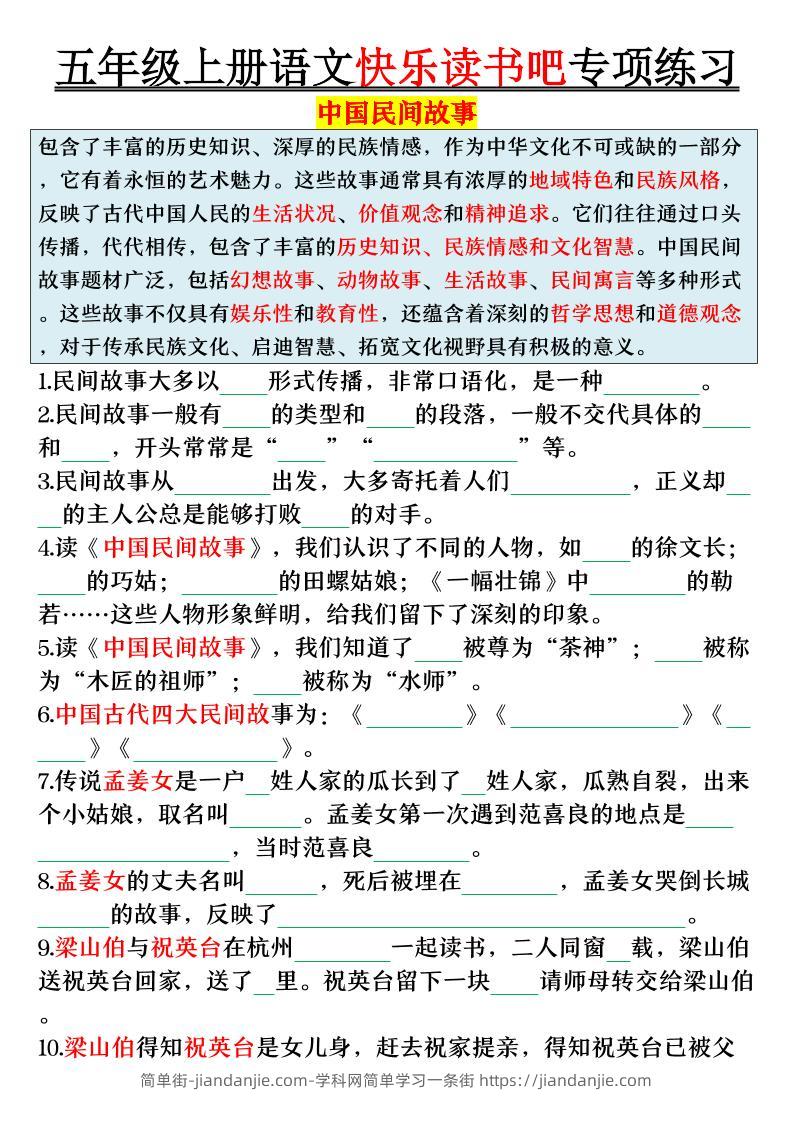 五年级上册语文快乐读书吧专项练习
中国民间故事
包含了丰富的历史知识、深厚的民族情感，作为中华文化不可或缺的一部分
，它有着永恒的艺术魅力。这些故事通常具有浓厚的地域特色和民族风格，
反映了古代中国人民的生活状况、价值观念和精神追求。它们往往通过口头
传播，代代相传，包含了丰富的历史知识、民族情感和文化智慧。中国民间
故事题材广泛，包括幻想故事、动物故事、生活故事、民间寓言等多种形式
。这些故事不仅具有娱乐性和教育性，还蕴含着深刻的哲学思想和道德观念
，对于传承民族文化、启迪智慧、拓宽文化视野具有积极的意义。
1.民间故事大多以____形式传播，非常口语化，是一种________。
2.民间故事一般有____的类型和____的段落，一般不交代具体的____
和____，开头常常是“____”“____________”等。
3.民间故事从________出发，大多寄托着人们__________，正义却__
__的主人公总是能够打败____的对手。
4.读《中国民间故事》，我们认识了不同的人物，如____的徐文长；
____的巧姑；________的田螺姑娘；《一幅壮锦》中________的勒
若……这些人物形象鲜明，给我们留下了深刻的印象。
5.读《中国民间故事》，我们知道了____被尊为“茶神”；____被称
为“木匠的祖师”；____被称为“水师”。
6.中国古代四大民间故事为：《________》《______________》《__
____》《____________》。
7.传说孟姜女是一户__姓人家的瓜长到了__姓人家，瓜熟自裂，出来
个小姑娘，取名叫______。孟姜女第一次遇到范喜良的地点是____
________________，当时范喜良________。
8.孟姜女的丈夫名叫______，死后被埋在________，孟姜女哭倒长城
______的故事，反映了__________________________________。
9.梁山伯与祝英台在杭州________一起读书，二人同窗__载，梁山伯
送祝英台回家，送了__里。祝英台留下一块____请师母转交给梁山伯
。
10.梁山伯得知祝英台是女儿身，赶去祝家提亲，得知祝英台已被父
简单街-jiandanjie.com-学科网简单学习一条街 https://jiandanjie.com